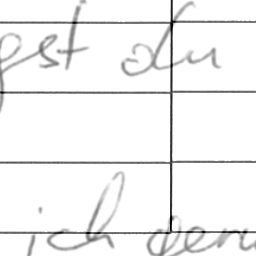 gst du
ich gern